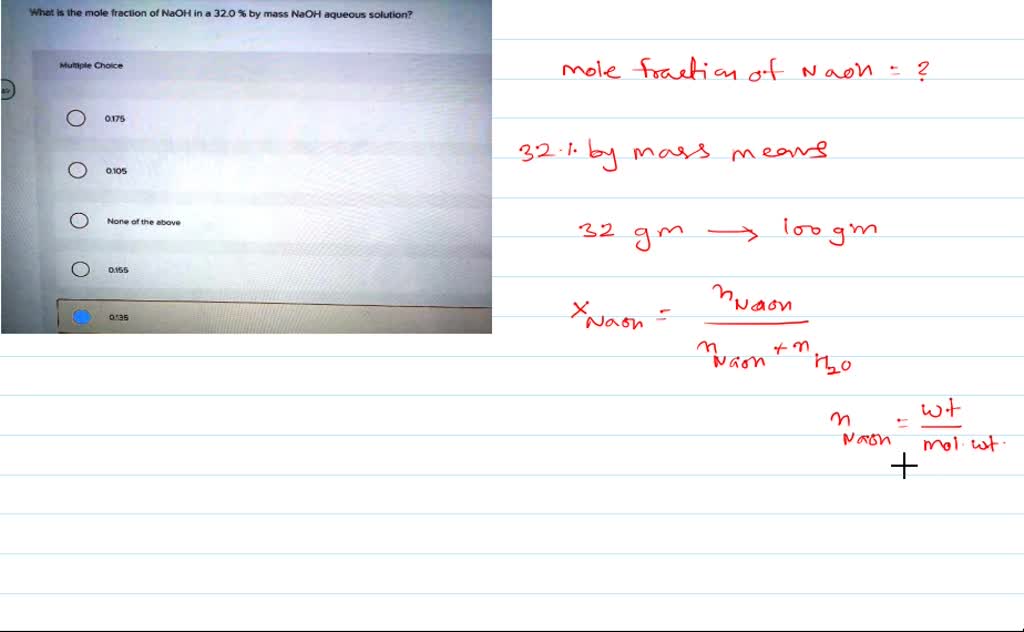 What is the mole fraction of NaOH in a 32.0 % by mass NaOH aqueous solution?
Multiple Choice
0.175
0.105
None of the above
0.155
0.135
mole fraction of NaOH = ?
32 % by mass means
32 gm → 100 gm
x NaOH = n NaOH / n NaOH + n H2O
n NaOH = wt / mol. wt.